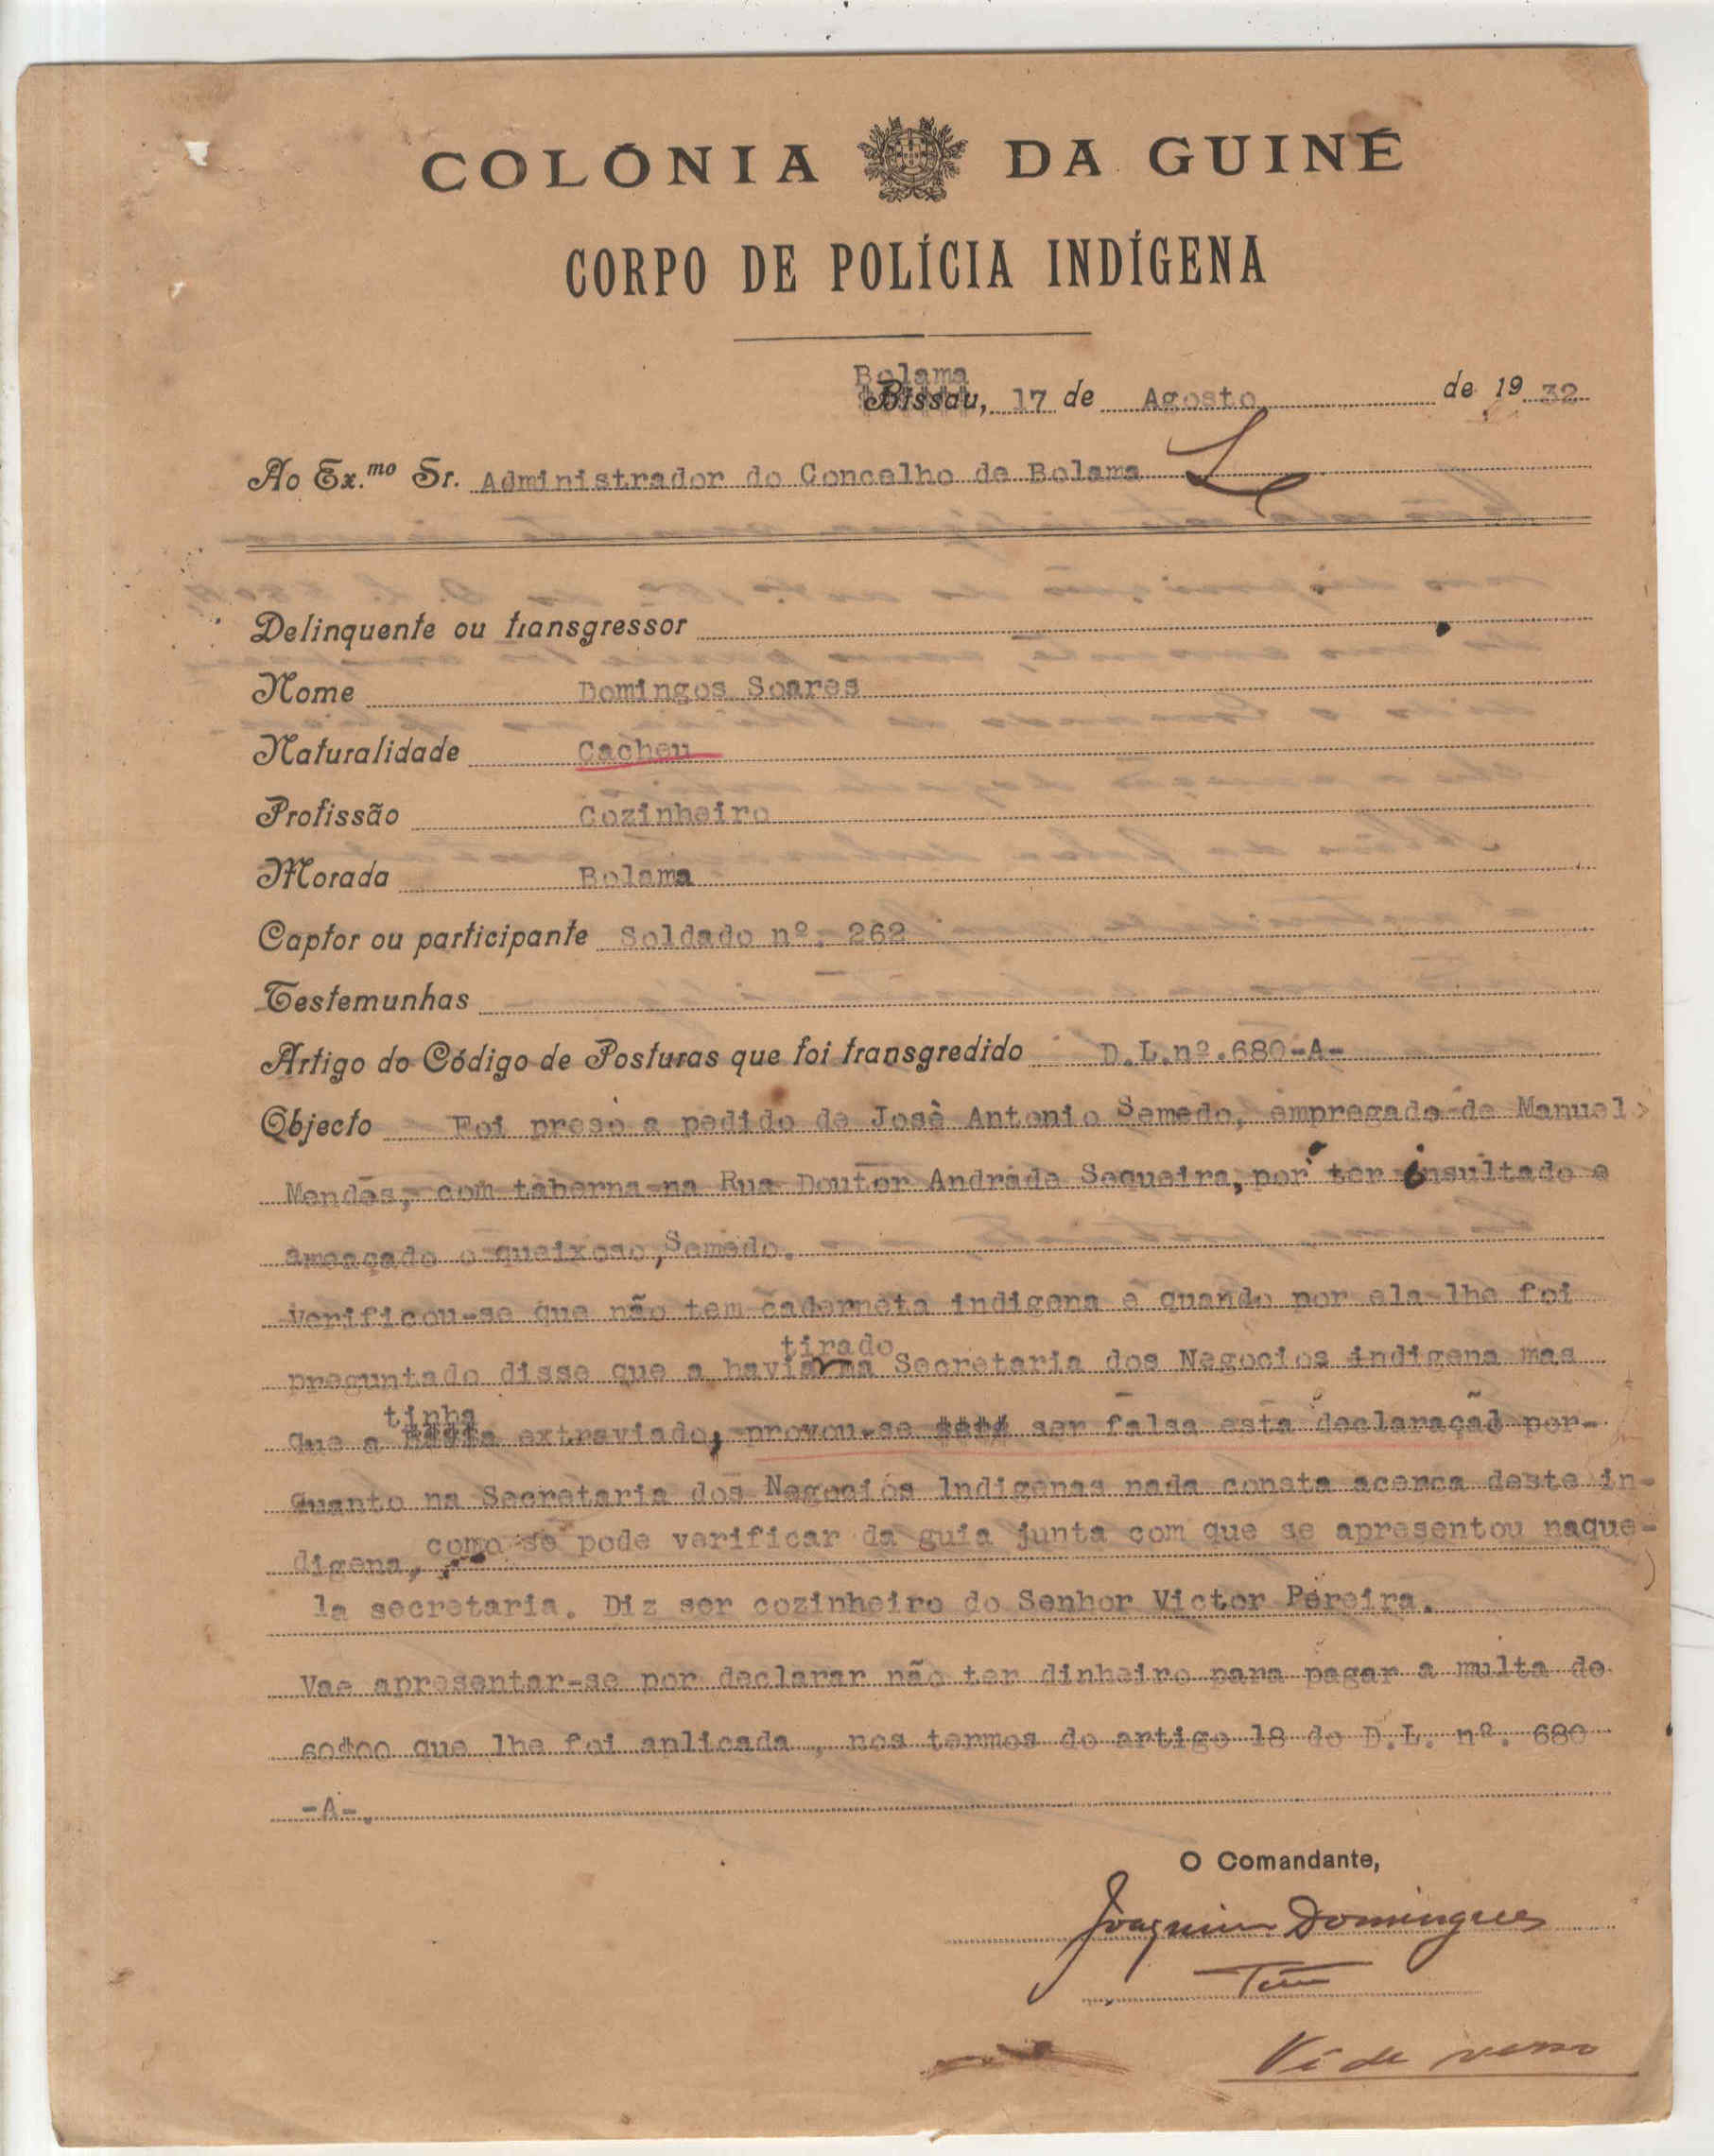 COLÓNIA DA GUINÉ
CORPO DE POLÍCIA INDÍGENA
Bolama
Bissau, 17 de Agosto de 1932
Ao Ex.mo Sr. Administrador do Concelho de Bolama
Delinquente ou transgressor
Nome Domingos Soares
Naturalidade Cacheu
Profissão Cozinheiro
Morada Bolama
Captor ou participante Soldado nº. 262
Testemunhas
Artigo do Código de Posturas que foi transgredido D.L.nº.680-A-
Objecto Foi preso a pedido de José Antonio Semedo, empregado de Manuel
Mendes, com taberna na Rua Doutor Andrade Sequeira, por ter insultado e
ameaçado o queixoso, Semedo.
Verificou-se que não tem caderneta indigena e quando por ela lhe foi
tirado
preguntado disse que a havia na Secretaria dos Negocios indigena mas
tinha
que a extraviado, provou-se ser falsa esta declaração por-
quanto na Secretaria dos Negocios Indigenas nada consta acerca deste in-
digena, como se pode verificar da guia junta com que se apresentou naque-
la secretaria. Diz ser cozinheiro do Senhor Victor Pereira.
Vae apresentar-se por declarar não ter dinheiro para pagar a multa de
60$00 que lhe foi aplicada, nos termos do artigo 18 do D.L. nº. 680
-A-.
O Comandante,
Joaquim Domingues
Ten
Vide verso